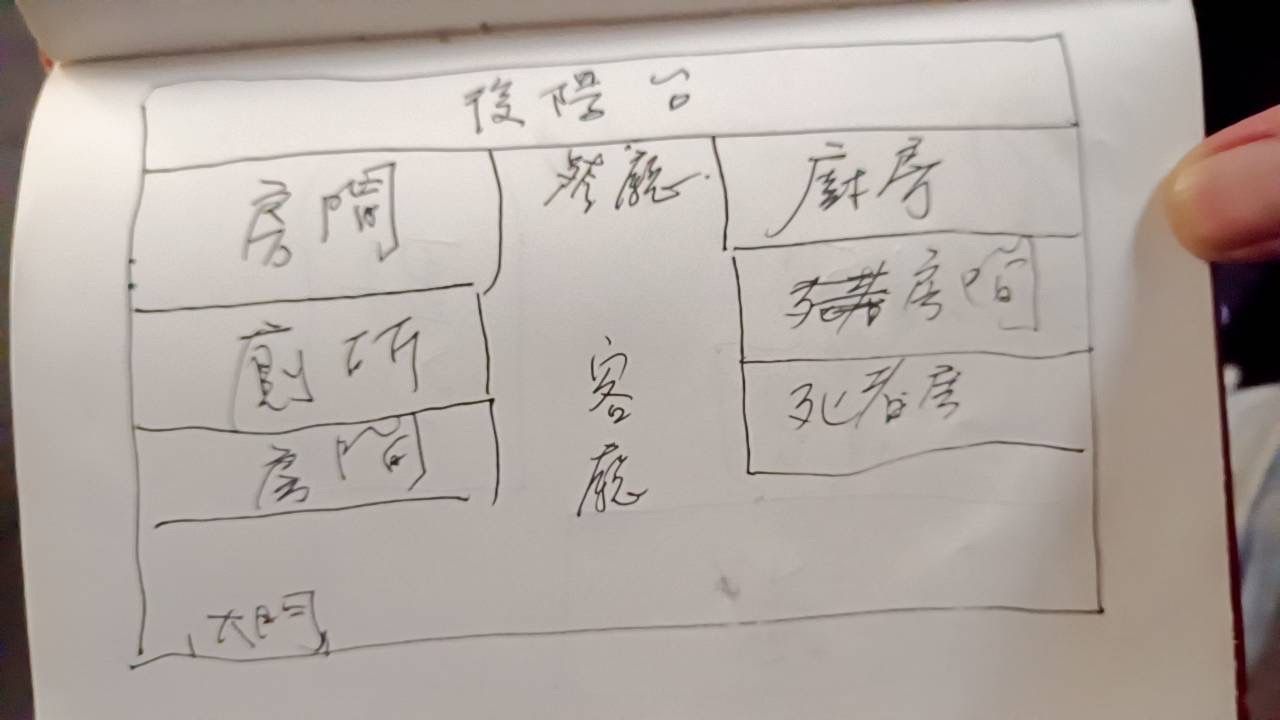 後陽台
房間
餐廳
廚房
廁所
死者房間
房間
客廳
死者房
大門